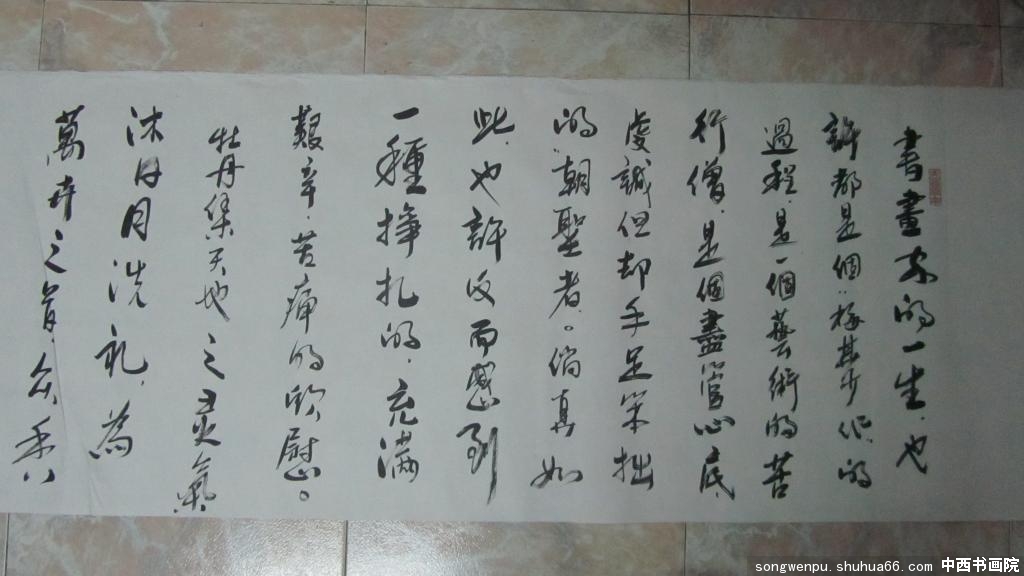 書畫家的一生，也
許都是個"悔其少作"的
過程，是一個藝術的苦
行僧，是個盡管心底
虔誠但却手足笨拙
的，朝聖者。倘真如
此，也許反而感到
一種掙扎的，充满
艱辛，苦痛的欣慰。
牡丹集天地之灵氣
沐日月洗礼，為
萬卉之首，
songwenpu.shuhua66.com 中西书画院